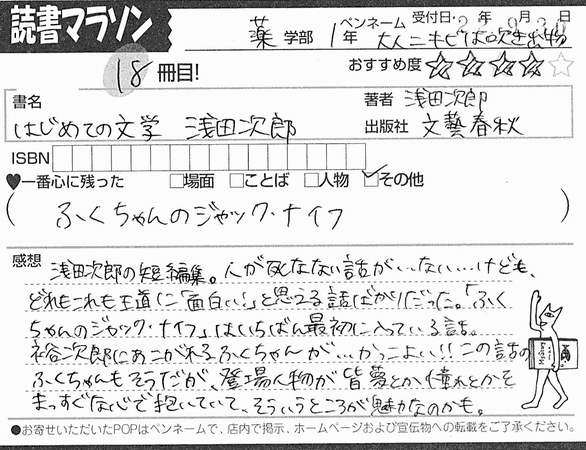 読書マラソン
薬学部 1年 ペンネーム 大人ニキビは吹き出物 受付日: 年 月 日
18冊目! おすすめ度 ★★★★☆
書名 はじめての文学 浅田次郎
著者 浅田次郎
出版社 文藝春秋
ISBN
♥一番心に残った □場面 □ことば □人物 ☑その他
(ふくちゃんのジャック・ナイフ)
感想 浅田次郎の短編集。人が死なない話が・・ない・・・けども、
どれもこれも王道に「面白い!」と思える話ばかりだった。「ふく
ちゃんのジャック・ナイフ」はいちばん最初に入っている話。
裕次郎にあこがれるふくちゃんが…かっこよい!!この話の
ふくちゃんもそうだが、登場人物が皆夢とか憧れとかを
まっすぐな心で抱いていて、そういうところが魅力なのかも。
●お寄せいただいたPOPはペンネームで、店内で掲示、ホームページおよび宣伝物への転載をご了承ください。